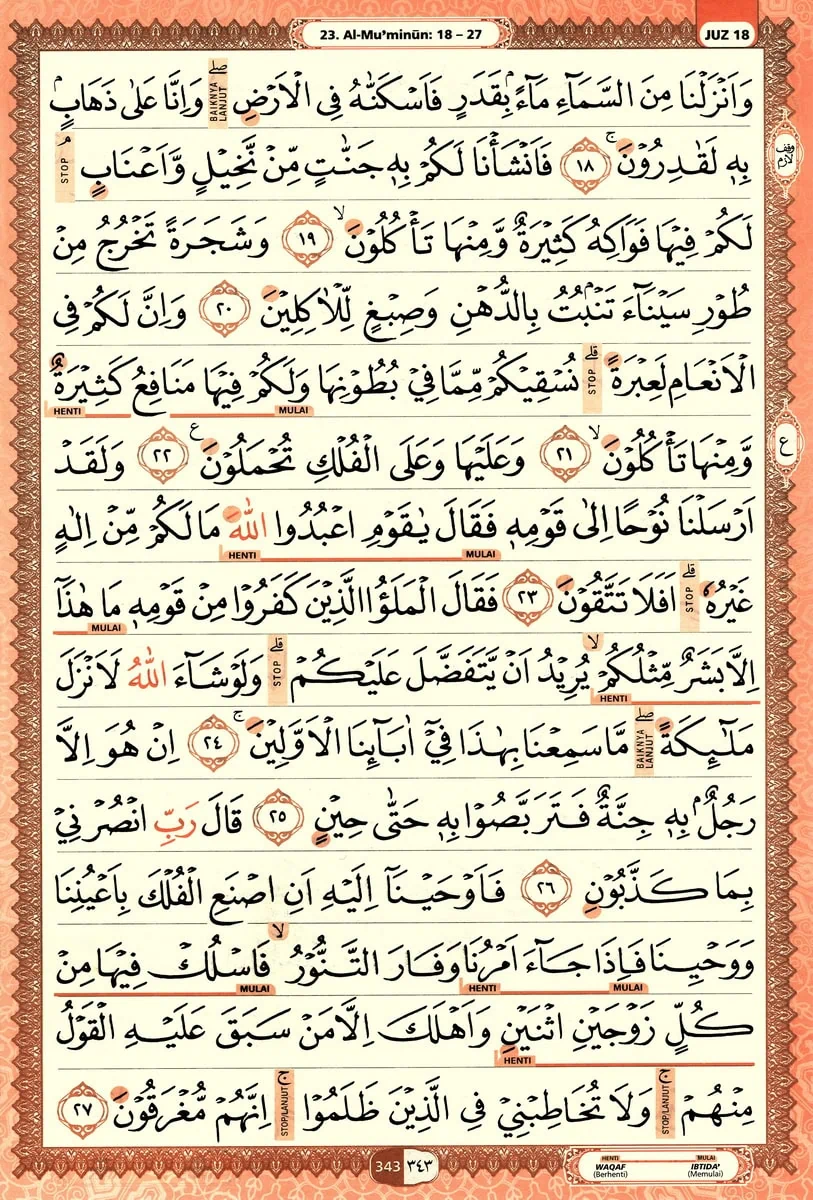 23. Al-Mu’minūn: 18 – 27
JUZ 18
وَاَنْزَلْنَا مِنَ السَّمَاۤءِ مَاۤءًۢ بِقَدَرٍ فَاَسْكَنّٰهُ فِى الْاَرْضِۖ BAIKNYA LANJUT وَاِنَّا عَلٰى ذَهَابٍۢ
بِهٖ لَقٰدِرُوْنَ ۚ ١٨ فَاَنْشَأْنَا لَكُمْ بِهٖ جَنّٰتٍ مِّنْ نَّخِيْلٍ وَّاَعْنَابٍۘ STOP
وقف لازم
لَكُمْ فِيْهَا فَوَاكِهُ كَثِيْرَةٌ وَّمِنْهَا تَأْكُلُوْنَ ۙ ١٩ وَشَجَرَةً تَخْرُجُ مِنْ
طُوْرِ سَيْنَاۤءَ تَنْۢبُتُ بِالدُّهْنِ وَصِبْغٍ لِّلْاٰكِلِيْنَ ٢٠ وَاِنَّ لَكُمْ فِى
الْاَنْعَامِ لَعِبْرَةًۗ STOP نُسْقِيْكُمْ مِّمَّا فِيْ بُطُوْنِهَا وَلَكُمْ فِيْهَا مَنَافِعُ كَثِيْرَةٌ
MULAI HENTI
وَّمِنْهَا تَأْكُلُوْنَ ۙ ٢١ وَعَلَيْهَا وَعَلَى الْفُلْكِ تُحْمَلُوْنَ ࣖ ٢٢ وَلَقَدْ
ع
اَرْسَلْنَا نُوْحًا اِلٰى قَوْمِهٖ فَقَالَ يٰقَوْمِ اعْبُدُوا اللّٰهَ مَا لَكُمْ مِّنْ اِلٰهٍ
MULAI HENTI
غَيْرُهٗۗ STOP اَفَلَا تَتَّقُوْنَ ٢٣ فَقَالَ الْمَلَؤُا الَّذِيْنَ كَفَرُوْا مِنْ قَوْمِهٖ مَا هٰذَآ
MULAI
اِلَّا بَشَرٌ مِّثْلُكُمْۙ يُرِيْدُ اَنْ يَّتَفَضَّلَ عَلَيْكُمْۗ STOP وَلَوْ شَاۤءَ اللّٰهُ لَاَنْزَلَ
HENTI
مَلٰۤىِٕكَةًۖ BAIKNYA LANJUT مَّا سَمِعْنَا بِهٰذَا فِيْٓ اٰبَاۤىِٕنَا الْاَوَّلِيْنَ ۚ ٢٤ اِنْ هُوَ اِلَّا
رَجُلٌۢ بِهٖ جِنَّةٌ فَتَرَبَّصُوْا بِهٖ حَتّٰى حِيْنٍ ٢٥ قَالَ رَبِّ انْصُرْنِيْ
بِمَا كَذَّبُوْنِ ٢٦ فَاَوْحَيْنَآ اِلَيْهِ اَنِ اصْنَعِ الْفُلْكَ بِاَعْيُنِنَا
وَوَحْيِنَا فَاِذَا جَاۤءَ اَمْرُنَا وَفَارَ التَّنُّوْرُۙ فَاسْلُكْ فِيْهَا مِنْ
MULAI HENTI MULAI
كُلٍّ زَوْجَيْنِ اثْنَيْنِ وَاَهْلَكَ اِلَّا مَنْ سَبَقَ عَلَيْهِ الْقَوْلُ
HENTI
مِنْهُمْۚ STOP/LANJUT وَلَا تُخَاطِبْنِيْ فِى الَّذِيْنَ ظَلَمُوْاۚ STOP/LANJUT اِنَّهُمْ مُّغْرَقُوْنَ ٢٧
343 ٣٤٣
HENTI MULAI
WAQAF IBTIDA’
(Berhenti) (Memulai)